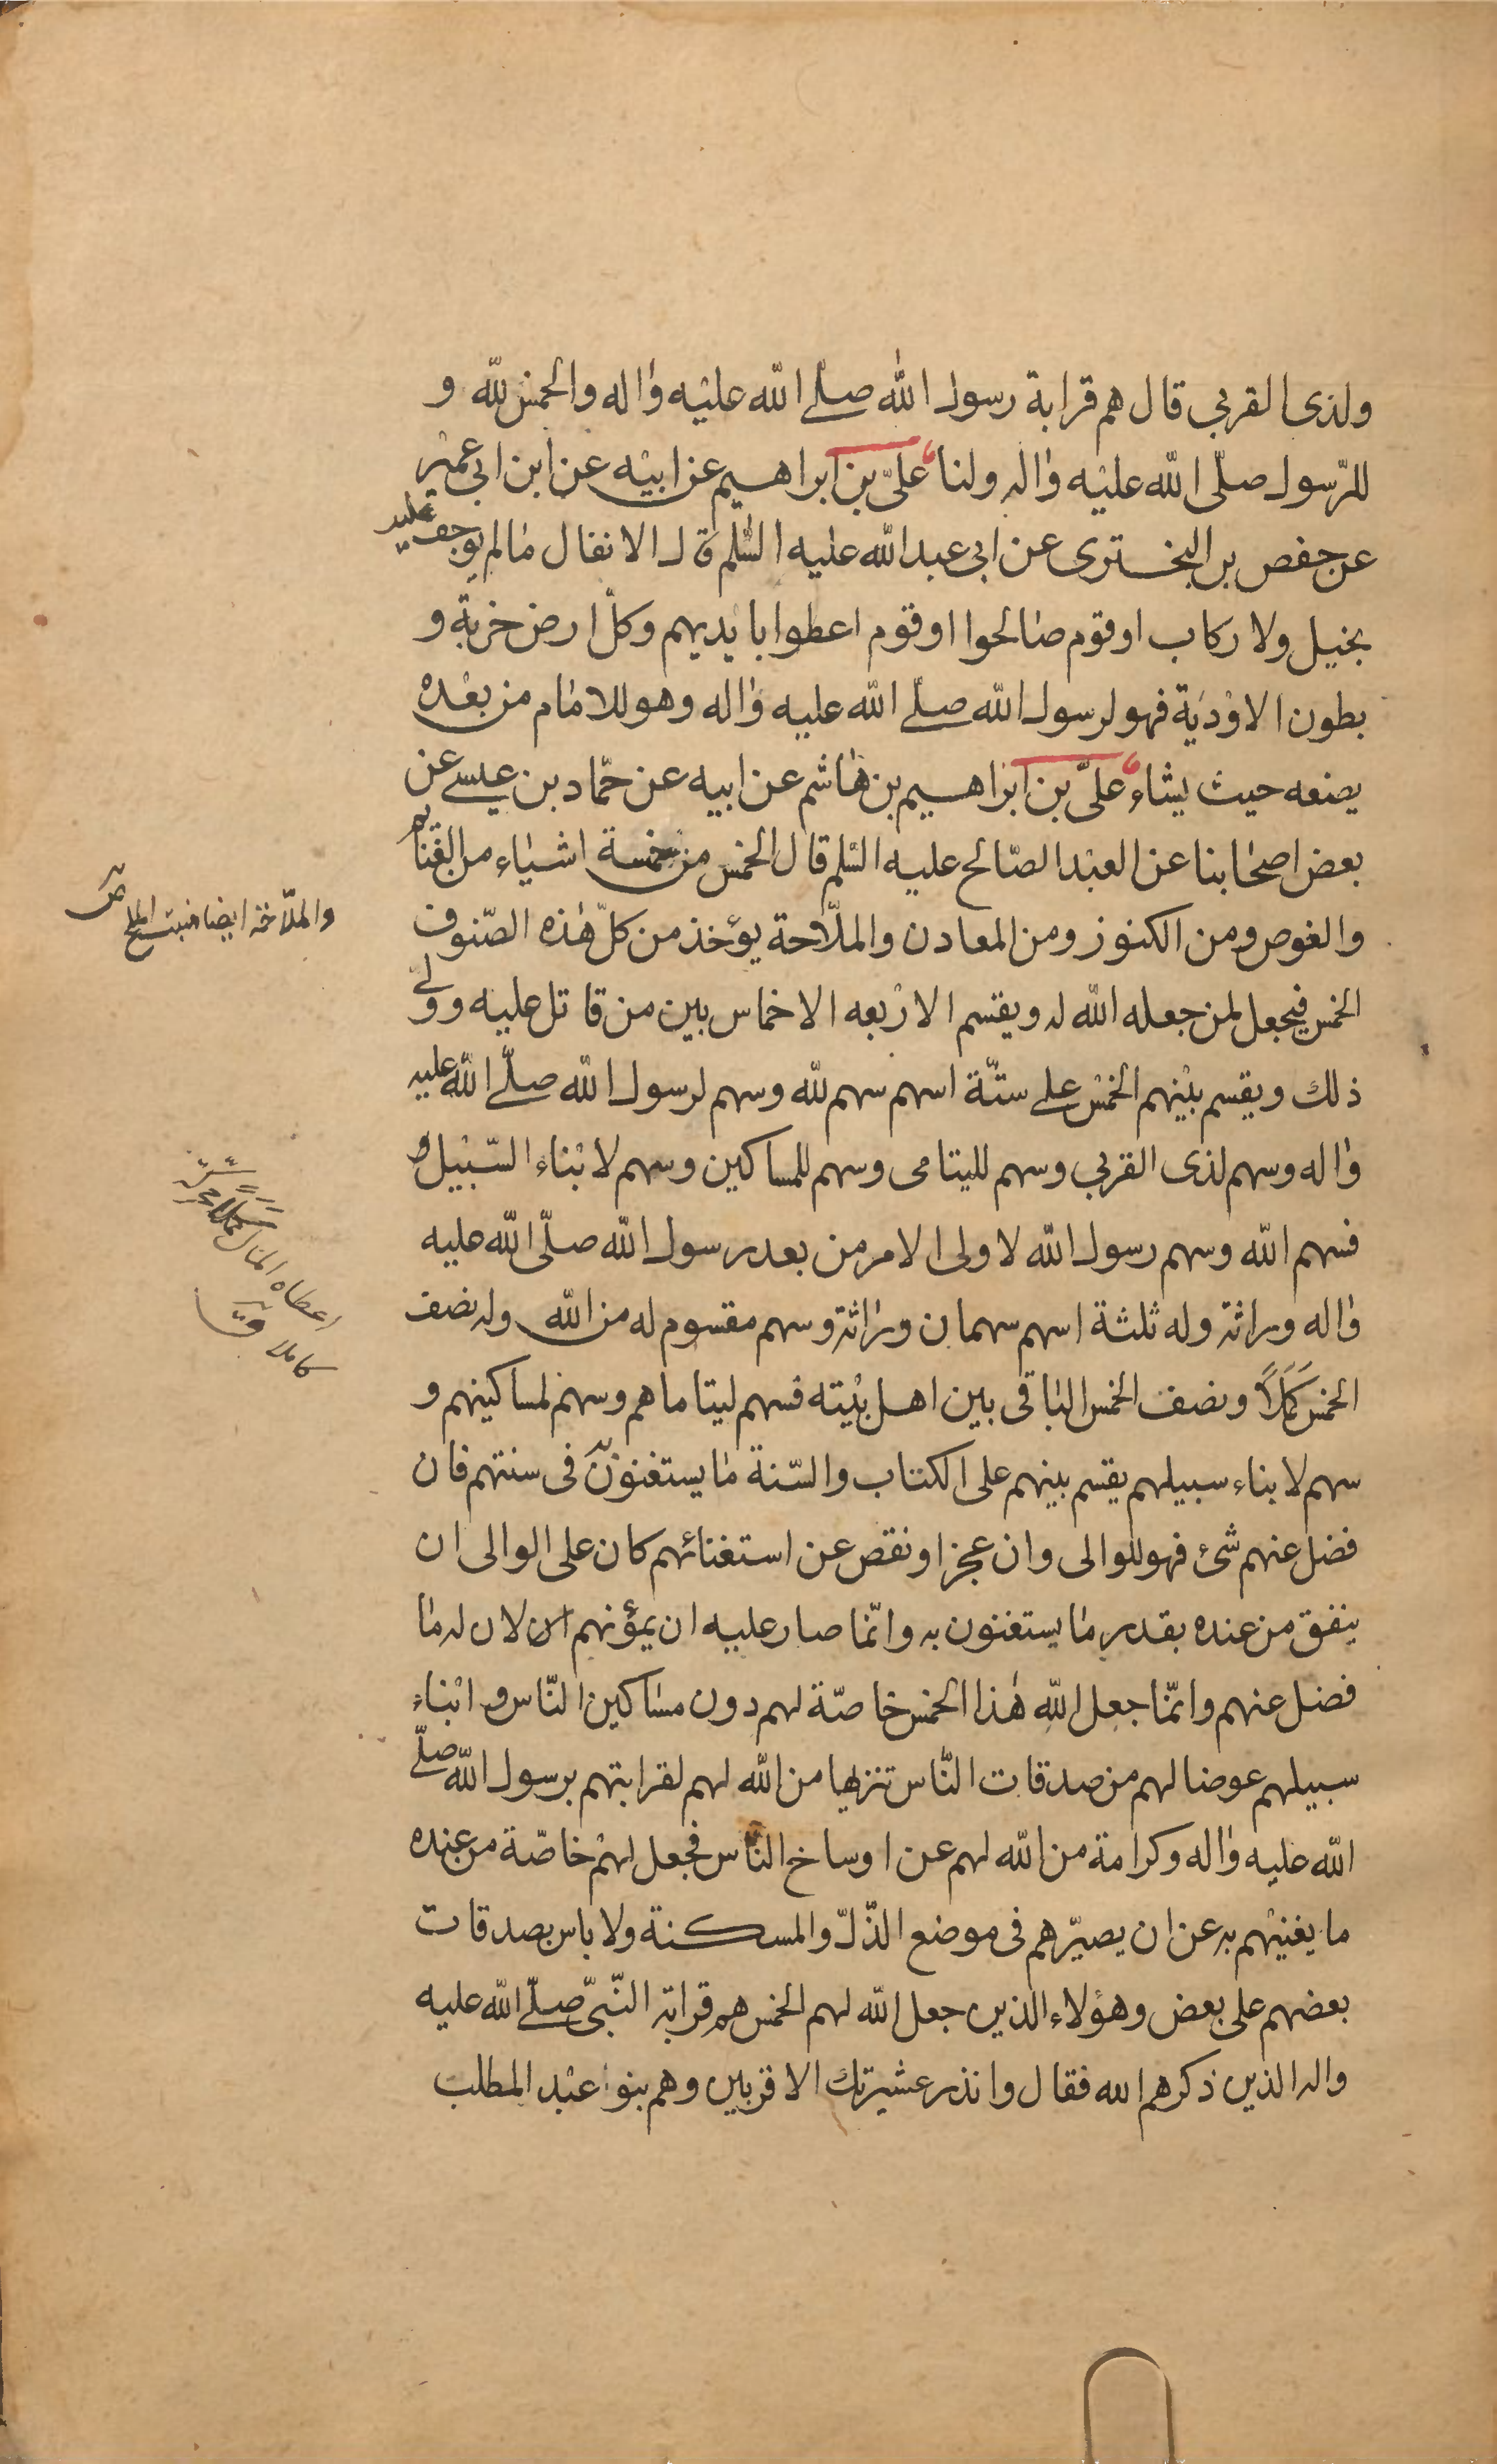 ولذى القربى قال هم قرابة رسول الله صلّى الله عليه واله والخمس لله و
للرّسول صلّى الله عليه واله ولنا علىّ بن ابراهيم عن ابيه عن ابن ابى عمير
عن حفص بن البخترى عن ابى عبد الله عليه السّلم قال الانفال مالم يوجف عليه
بخيل ولا ركاب او قوم صالحوا او قوم اعطوا بايديهم وكلّ ارض خربة و
بطون الاودية فهو لرسول الله صلّى الله عليه واله وهو للامام من بعده
يضعه حيث يشاء علىّ بن ابراهيم بن هاشم عن ابيه عن حمّاد بن عيسى عن
بعض اصحابنا عن العبد الصّالح عليه السّلم قال الخمس من خمسة اشياء من الغنايم
والغوص ومن الكنوز ومن المعادن والملّاحة يؤخذ من كلّ هذه الصّنوف
الخمس فيجعل لمن جعله الله له ويقسم الاربعه الاخماس بين من قاتل عليه وولى
ذلك ويقسم بينهم الخمس على ستّة اسهم سهم لله وسهم لرسول الله صلّى الله عليه
واله وسهم لذى القربى وسهم لليتامى وسهم للمساكين وسهم لابناء السّبيل و
فسهم الله وسهم رسول الله لاولى الامر من بعد رسول الله صلّى الله عليه
واله وراثة وله ثلثة اسهم سهمان وراثة وسهم مقسوم له من الله وله نصف
الخمس كَمَلاً ونصف الخمس الباقى بين اهل بيته فسهم ليتاماهم وسهم لمساكينهم و
سهم لابناء سبيلهم يقسم بينهم على الكتاب والسّنة ما يستغنون فى سنتهم فان
فضل عنهم شئ فهو للوالى وان عجز او نقص عن استغنائهم كان على الوالى ان
ينفق من عنده بقدر ما يستغنون به وانّما صار عليه ان يمؤنهم لان له ما
فضل عنهم وانّما جعل الله هذا الخمس خاصّة لهم دون مساكين النّاس وابناء
سبيلهم عوضا لهم من صدقات النّاس تنزيها من الله لهم لقرابتهم برسول الله صلّى
الله عليه واله وكرامة من الله لهم عن اوساخ النّاس فجعل لهم خاصّة من عنده
ما يغنيهم به عن ان يصيّرهم فى موضع الذّلّ والمسكنة ولا باس بصدقات
بعضهم على بعض وهؤلاء الذين جعل الله لهم الخمس هم قرابة النّبىّ صلّى الله عليه
واله الذين ذكرهم الله فقال وانذر عشيرتك الاقربين وهم بنو عبد المطلب
والملّاحة ايضا منبت الملح ص
اعطاه المال كَمَلاً
كاملا ق